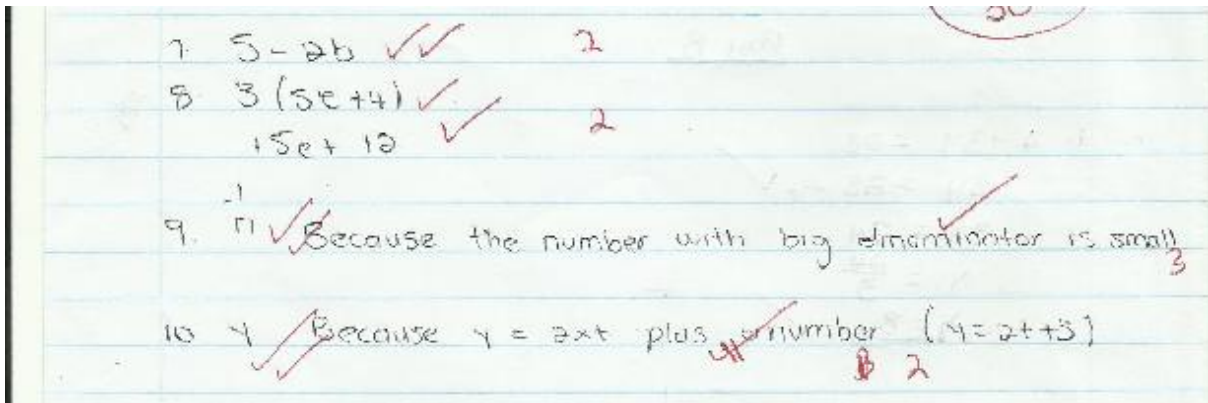 7. 5-2b 2
8. 3(5e+4)
15e+12 2
9. Because the number with big dinominator is small
3
10 y Because y = 2xt plus number (y=2t+3)
2